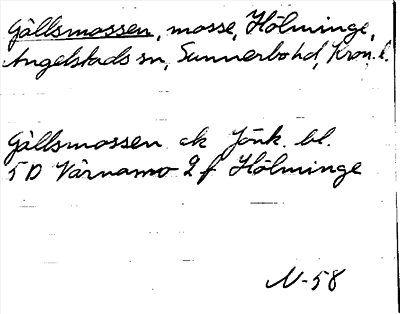 Gällsmossen, mosse, Hölminge,
Angelstads sn, Sunnerbo hd, Kron. l.
Gällsmossen ek Jönk. bl.
5 D Värnamo 2 f Hölminge
N-58